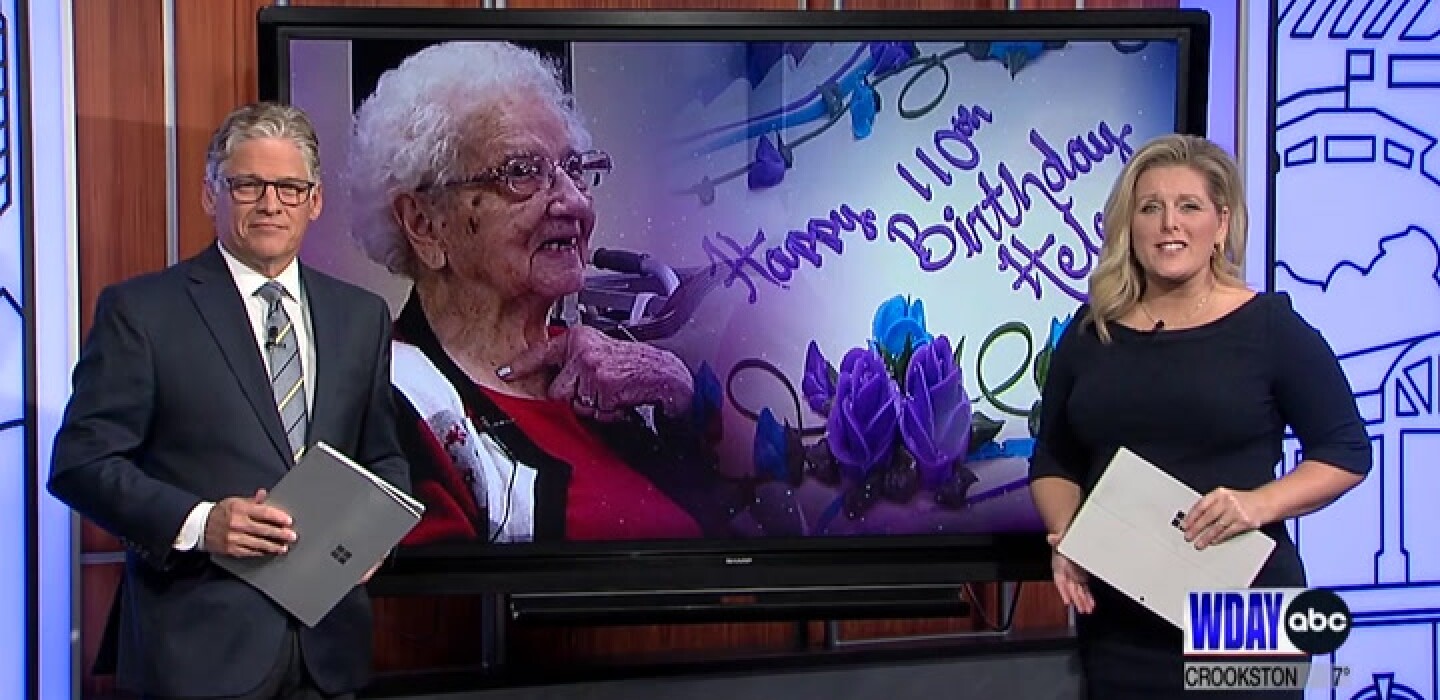 Happy
110th
Birthday
SHARP
WDAY abc
CROOKSTON 7°